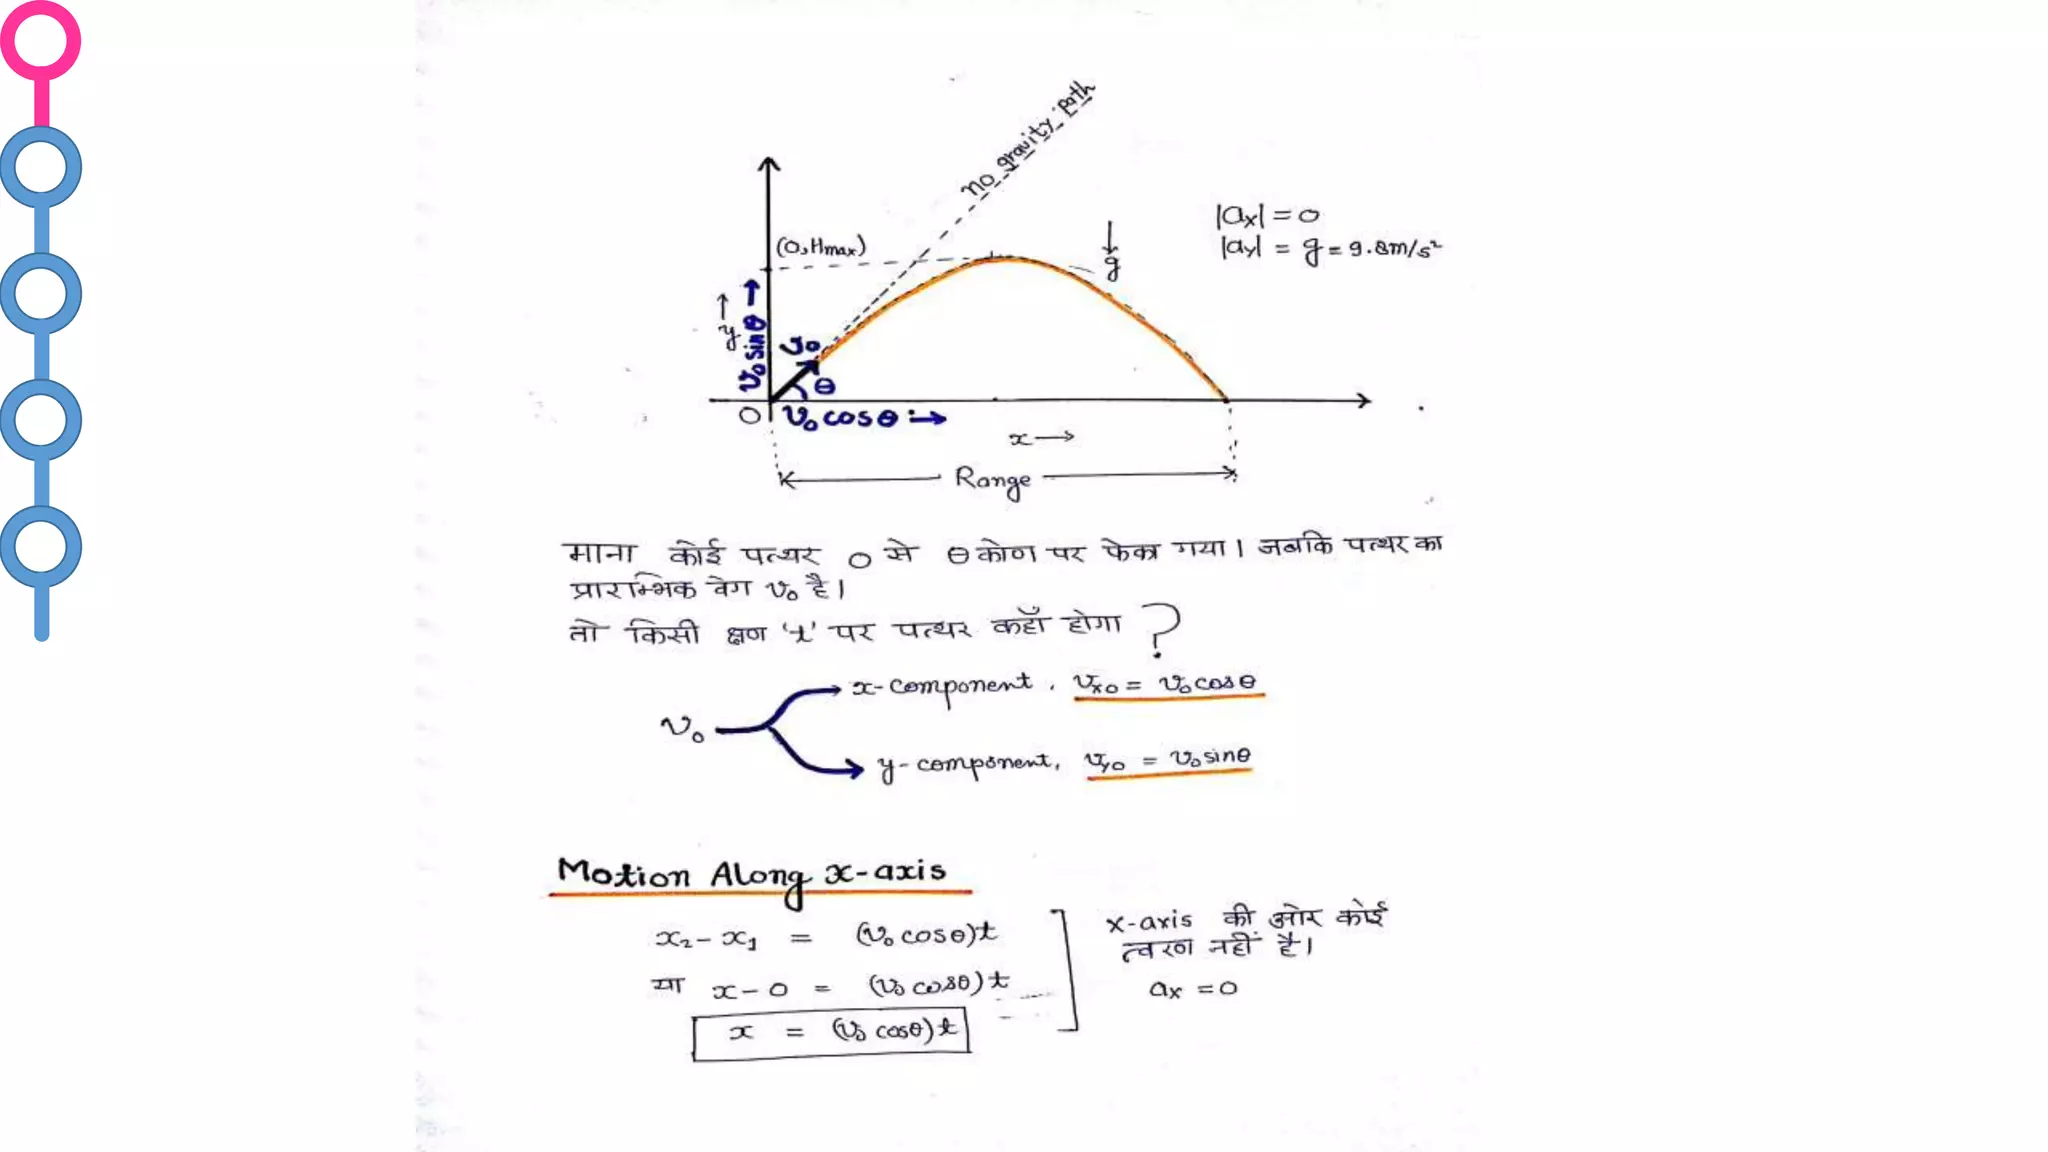 no gravity path
|ax| = 0
|ay| = g = 9.8m/s²
(0,Hmax)
g
y
v₀ sinθ
v₀
θ
O
v₀ cosθ
x
Range
माना कोई पत्थर O से θ कोण पर फेका गया। जबकि पत्थर का
प्रारम्भिक वेग v₀ है।
तो किसी क्षण 't' पर पत्थर कहाँ होगा ?
v₀
x-component, vx₀ = v₀ cosθ
y-component, vy₀ = v₀ sinθ
Motion Along x-axis
x₂ - x₁ = (v₀ cosθ)t
या x - 0 = (v₀ cosθ)t
x = (v₀ cosθ)t
x-axis की ओर कोई
त्वरण नहीं है।
ax = 0